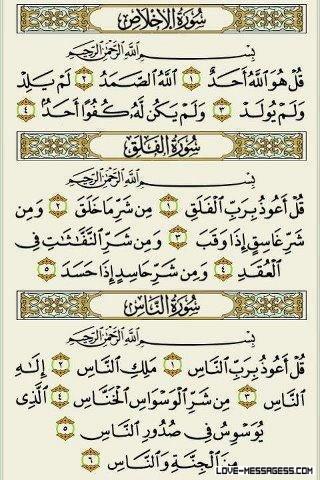 سُورَةُ الإِخْلَاصِ
بِسْمِ اللَّهِ الرَّحْمَٰنِ الرَّحِيمِ
قُلْ هُوَ اللَّهُ أَحَدٌ ١ اللَّهُ الصَّمَدُ ٢ لَمْ يَلِدْ
وَلَمْ يُولَدْ ٣ وَلَمْ يَكُن لَّهُ كُفُوًا أَحَدٌ ٤
سُورَةُ الْفَلَقِ
بِسْمِ اللَّهِ الرَّحْمَٰنِ الرَّحِيمِ
قُلْ أَعُوذُ بِرَبِّ الْفَلَقِ ١ مِن شَرِّ مَا خَلَقَ ٢ وَمِن
شَرِّ غَاسِقٍ إِذَا وَقَبَ ٣ وَمِن شَرِّ النَّفَّاثَاتِ فِي
الْعُقَدِ ٤ وَمِن شَرِّ حَاسِدٍ إِذَا حَسَدَ ٥
سُورَةُ النَّاسِ
بِسْمِ اللَّهِ الرَّحْمَٰنِ الرَّحِيمِ
قُلْ أَعُوذُ بِرَبِّ النَّاسِ ١ مَلِكِ النَّاسِ ٢ إِلَٰهِ
النَّاسِ ٣ مِن شَرِّ الْوَسْوَاسِ الْخَنَّاسِ ٤ الَّذِي
يُوَسْوِسُ فِي صُدُورِ النَّاسِ ٥
مِنَ الْجِنَّةِ وَالنَّاسِ ٦
LOVE-MESSAGESS.COM